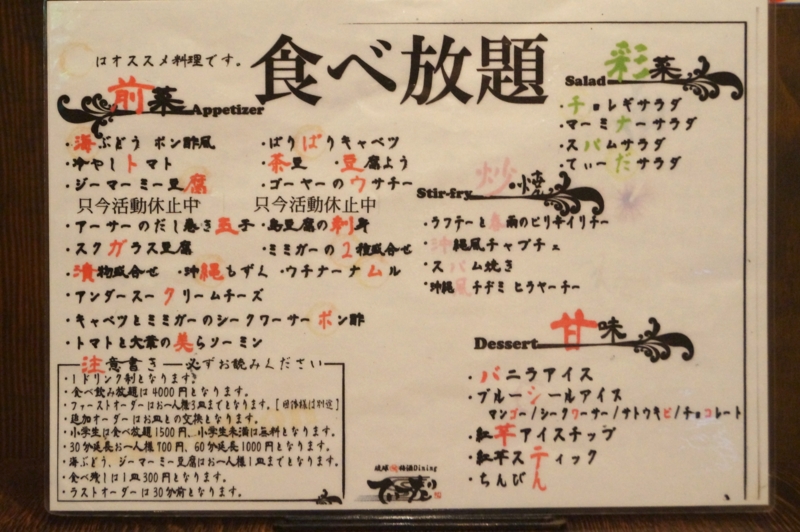 はオススメ料理です。
食べ放題
前菜 Appetizer
・海ぶどう ポン酢風
・冷やしトマト
・ジーマーミー豆腐
只今活動休止中
・アーサーのだし巻き玉子
・スクガラス豆腐
・漬物盛合せ ・沖縄もずく ・ウチナーナムル
・アンダースークリームチーズ
・キャベツとミミガーのシークワーサーポン酢
・トマトと大葉の美らソーミン
・ぱりぱりキャベツ
・茶豆 ・豆腐よう
・ゴーヤーのウサチー
只今活動休止中
・島豆腐の刺身
・ミミガーの2種盛合せ
Salad 彩菜
・チョレギサラダ
・マーミナーサラダ
・スパムサラダ
・てぃーだサラダ
Stir-fry 炒・焼
・ラフテーと春雨のピリ辛イリチー
・沖縄風チャプチェ
・スパム焼き
・沖縄風チヂミ ヒラヤーチー
Dessert 甘味
・バニラアイス
・ブルーシールアイス
マンゴー/シークワーサー/サトウキビ/チョコレート
・紅芋アイスチップ
・紅芋スティック
・ちんびん
注意書き―必ずお読みください
・1ドリンク制となります。
・食べ飲み放題は4000円となります。
・ファーストオーダーはお一人様3皿までとなります。[団体様は別途]
・追加オーダーはお皿との交換となります。
・小学生は食べ放題1500円、小学生未満は無料となります。
・30分延長お一人様700円、60分延長1000円となります。
・海ぶどう、ジーマーミー豆腐はお一人様1皿までとなります。
・食べ残しは1皿300円となります。
・ラストオーダーは30分前となります。
Dining